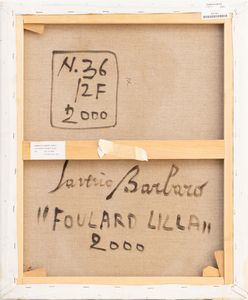 N. 36
/2F
2000
Saverio Barbaro
"FOULARD LILLA"
2000